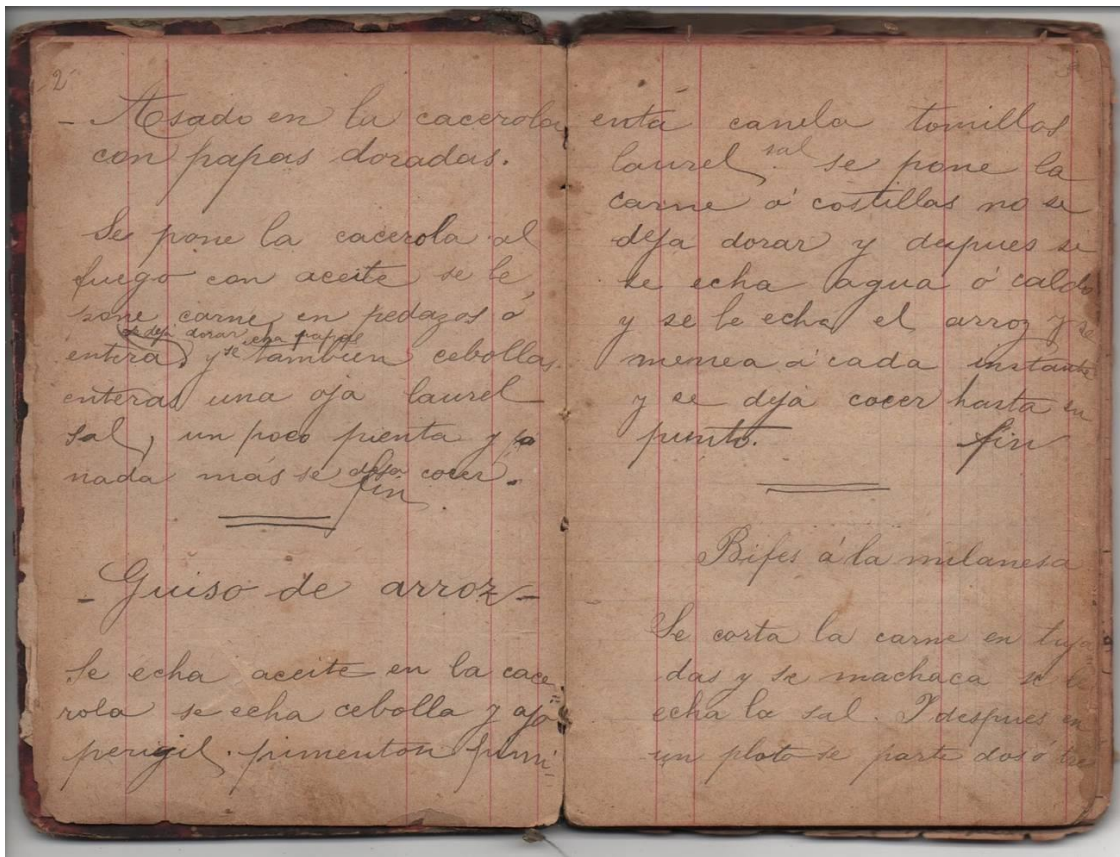 2
- Asado en la cacerola
con papas doradas.
Se pone la cacerola al
fuego con aceite se le
pone carne en pedazos ó
se deja dorar se echa papas
entera y tambien cebolla
enteras una oja laurel
sal, un poco pienta y
nada más se deja cocer.
fin
- Guiso de arroz -
Se echa aceite en la cace
rola se echa cebolla y ajo
perigil. pimenton pimi-
3
enta canela tomillos
laurel sal se pone la
carne ó costillas no se
deja dorar y depues si
se echa agua ó caldo
y se le echa el arroz y se
menea á cada instante
y se deja cocer hasta en
punto. fin
Bifes á la milanesa
Se corta la carne en taja
das y se machaca se le
echa la sal. I despues en
un plato se parte dos ó tres